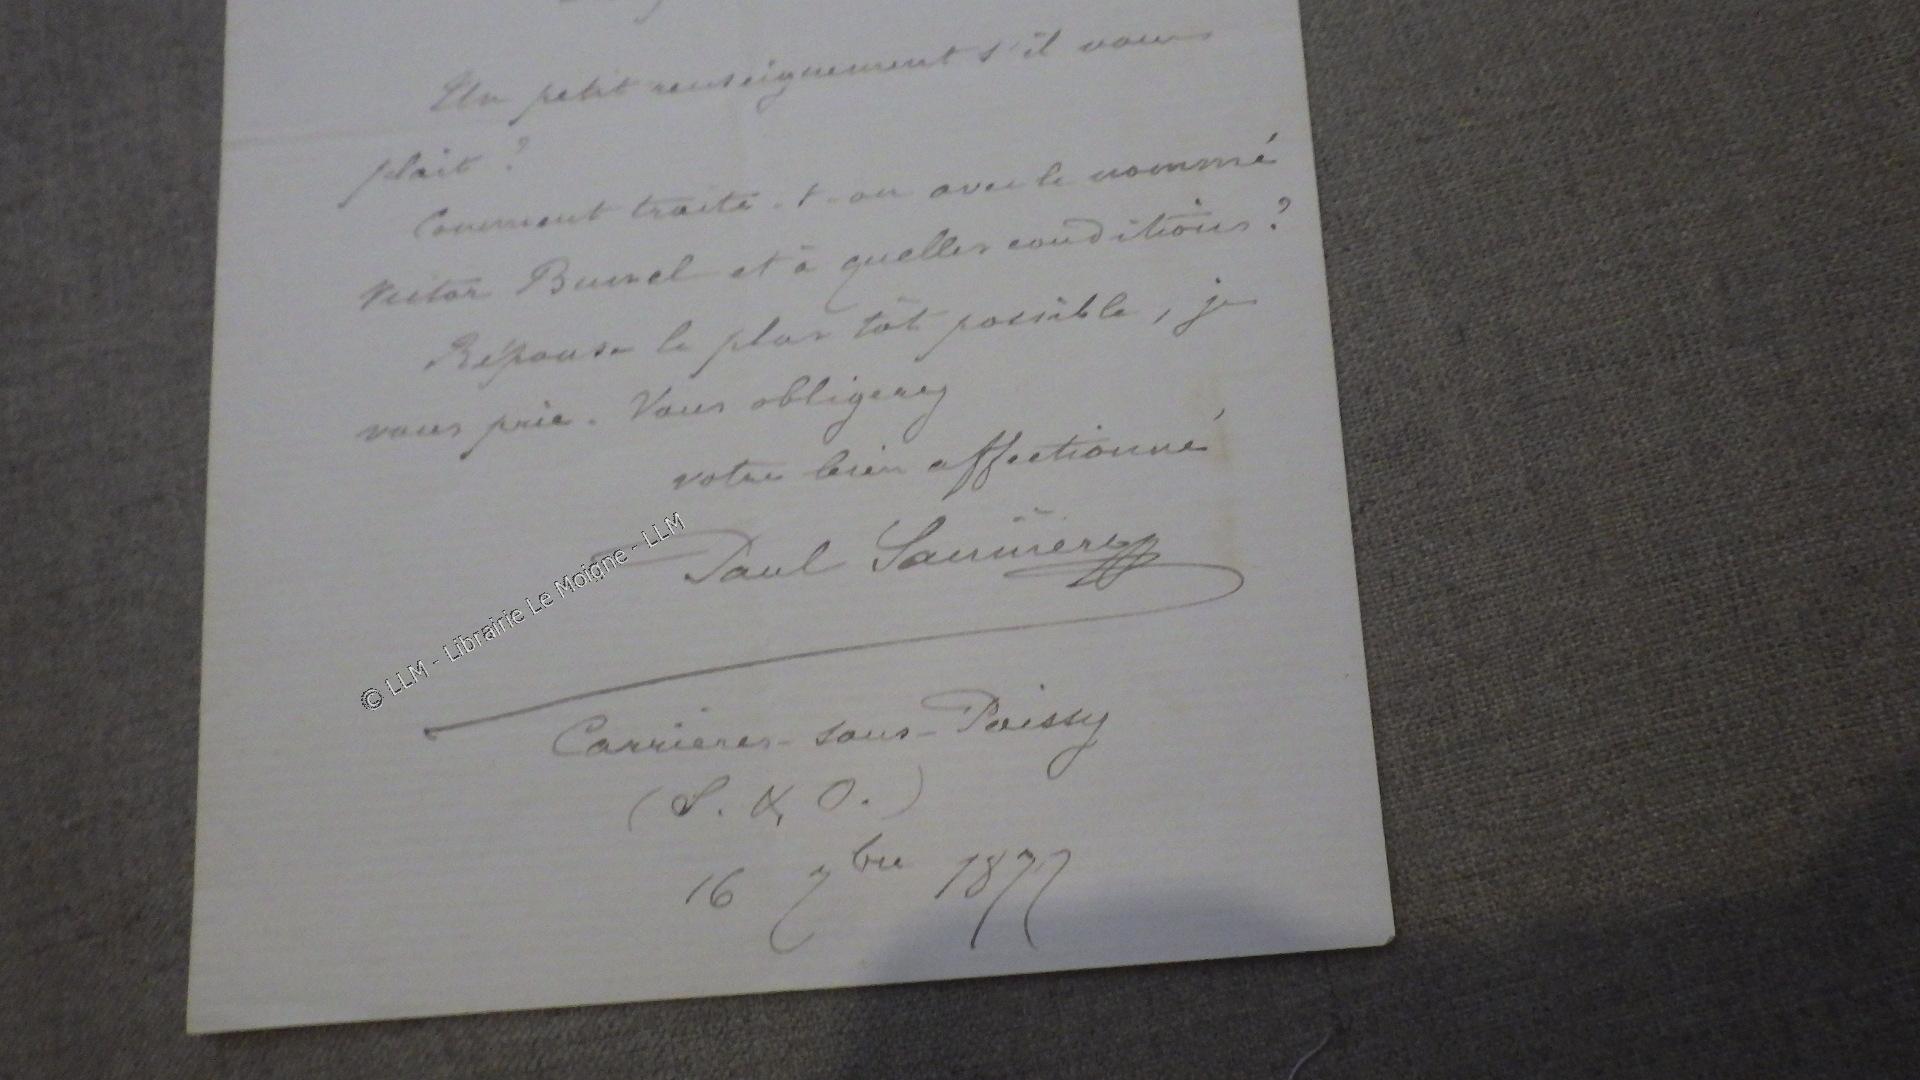 Un petit renseignement s'il vous
plait ?
Comment traite-t-on avec le nommé
Victor Bunel et à quelles conditions ?
Réponse le plus tôt possible, je
vous prie. Vous obligerez
votre bien affectionné
Paul Saunière
© LLM - Librairie Le Moigne - LLM
Carrières-sous-Poissy
(S. & O.)
16 7bre 1877